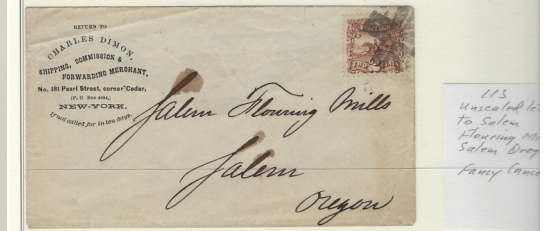 RETURN TO
CHARLES DIMON,
SHIPPING, COMMISSION &
FORWARDING MERCHANT,
No. 181 Pearl Street, corner Cedar,
(P. O. Box
NEW-YORK.
If not called for in ten days.
Salem Flouring Mills
Salem
Oregon
113
Unsealed
to Salem
Flouring
Salem Oreg
Fancy Cance